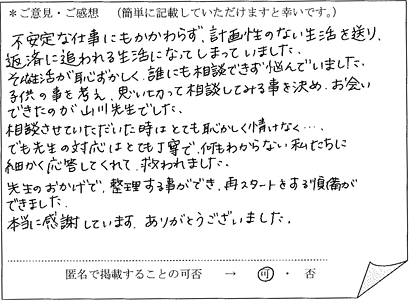 ＊ご意見・ご感想　（簡単に記載していただけますと幸いです。）
不安定な仕事にもかかわらず、計画性のない生活を送り、
返済に追われる生活になってしまっていました。
その生活が恥ずかしく、誰にも相談できず悩んでいました。
子供の事を考え、思い切って相談してみる事を決め、お会い
できたのが山川先生でした。
相談させていただいた時はとても恥かしく情けなく…、
でも先生の対応はとても丁寧で、何もわからない私たちに
細かく応答してくれて、救われました。
先生のおかげで、整理する事ができ、再スタートをする準備が
できました。
本当に感謝しています。ありがとうございました。
匿名で掲載することの可否　→　可・否